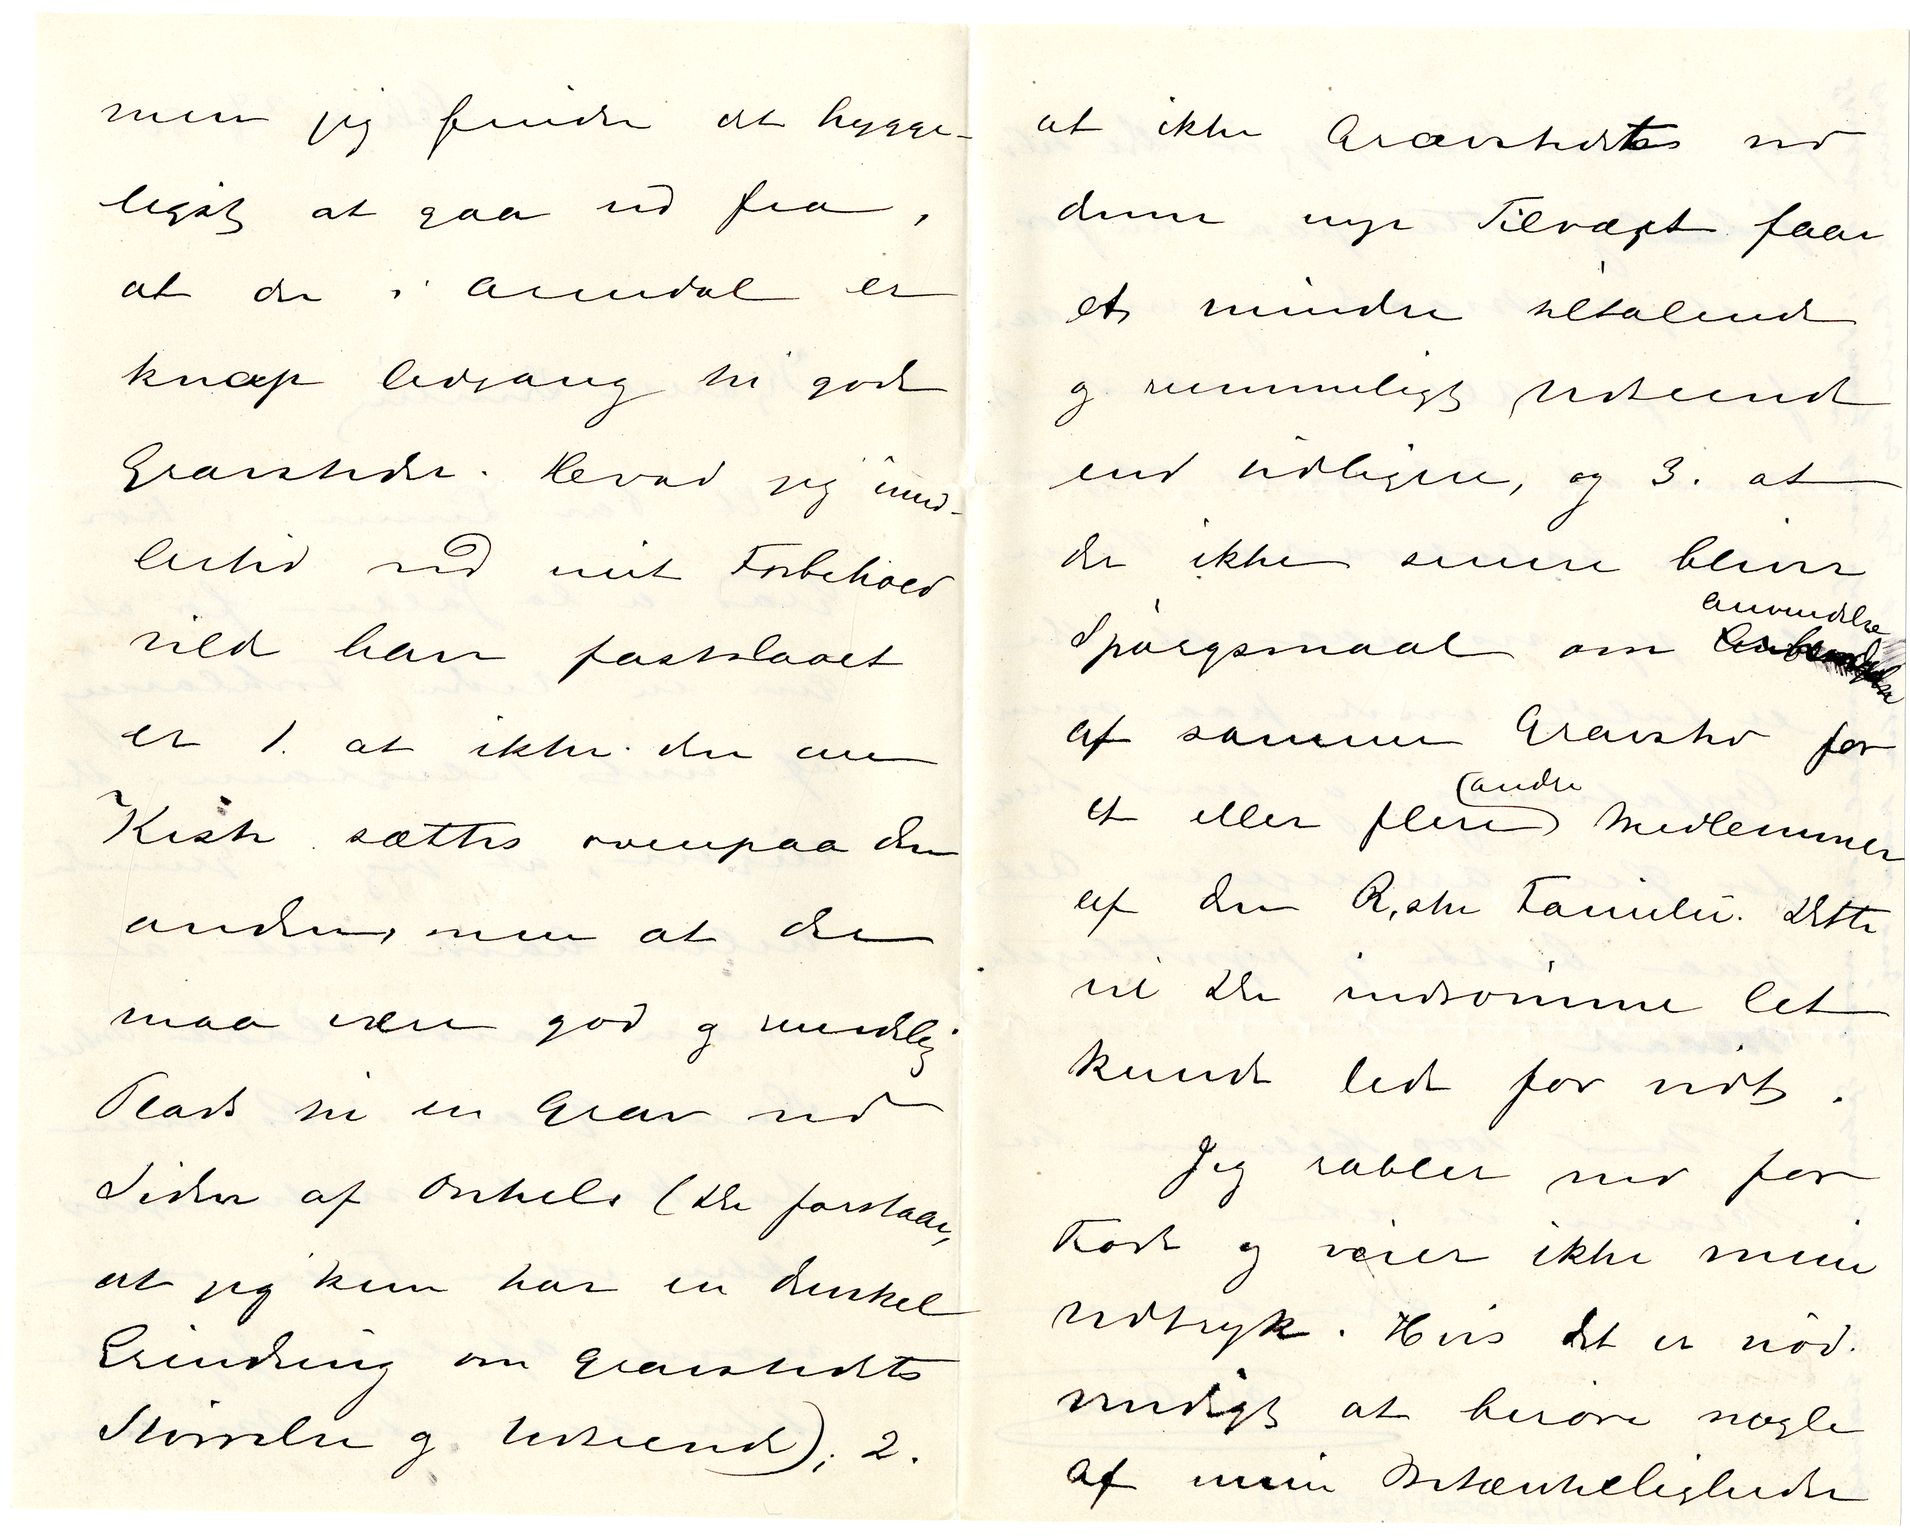 men jeg finder det hygge-
ligst at gaa ud fra,
at der i Arendal er
knap Adgang til gode
Gravsteder. Hvad jeg imid-
lertid ved mit Forbehold
vilde have fastslaaet
er 1. at ikke den ene
Kiste sættes ovenpaa den
anden, men at der
maa være god og rundelig
Plads til en Grav ved
Siden af Onkels (De forstaar,
at jeg kun har en dunkel
Erindring om Gravstedets
Størrelse og Udseende); 2.
at ikke Gravstedets ved
denne nye Tilvægt faar
et mindre tiltalende
og rummeligt Udseende
end tidligere, og 3. at
der ikke senere bliver
Spørgsmaal om Anvendelse
af samme Gravsted for
et eller flere andre Medlemmer
af den R,ske Familie. Dette
vil De indrømme let
kunde lede for vidt.
Jeg rabler ned for
Fode og veier ikke mine
Udtryk. Hvis det er nød-
vendigt at berøre nogle
af mine Betænkeligheder